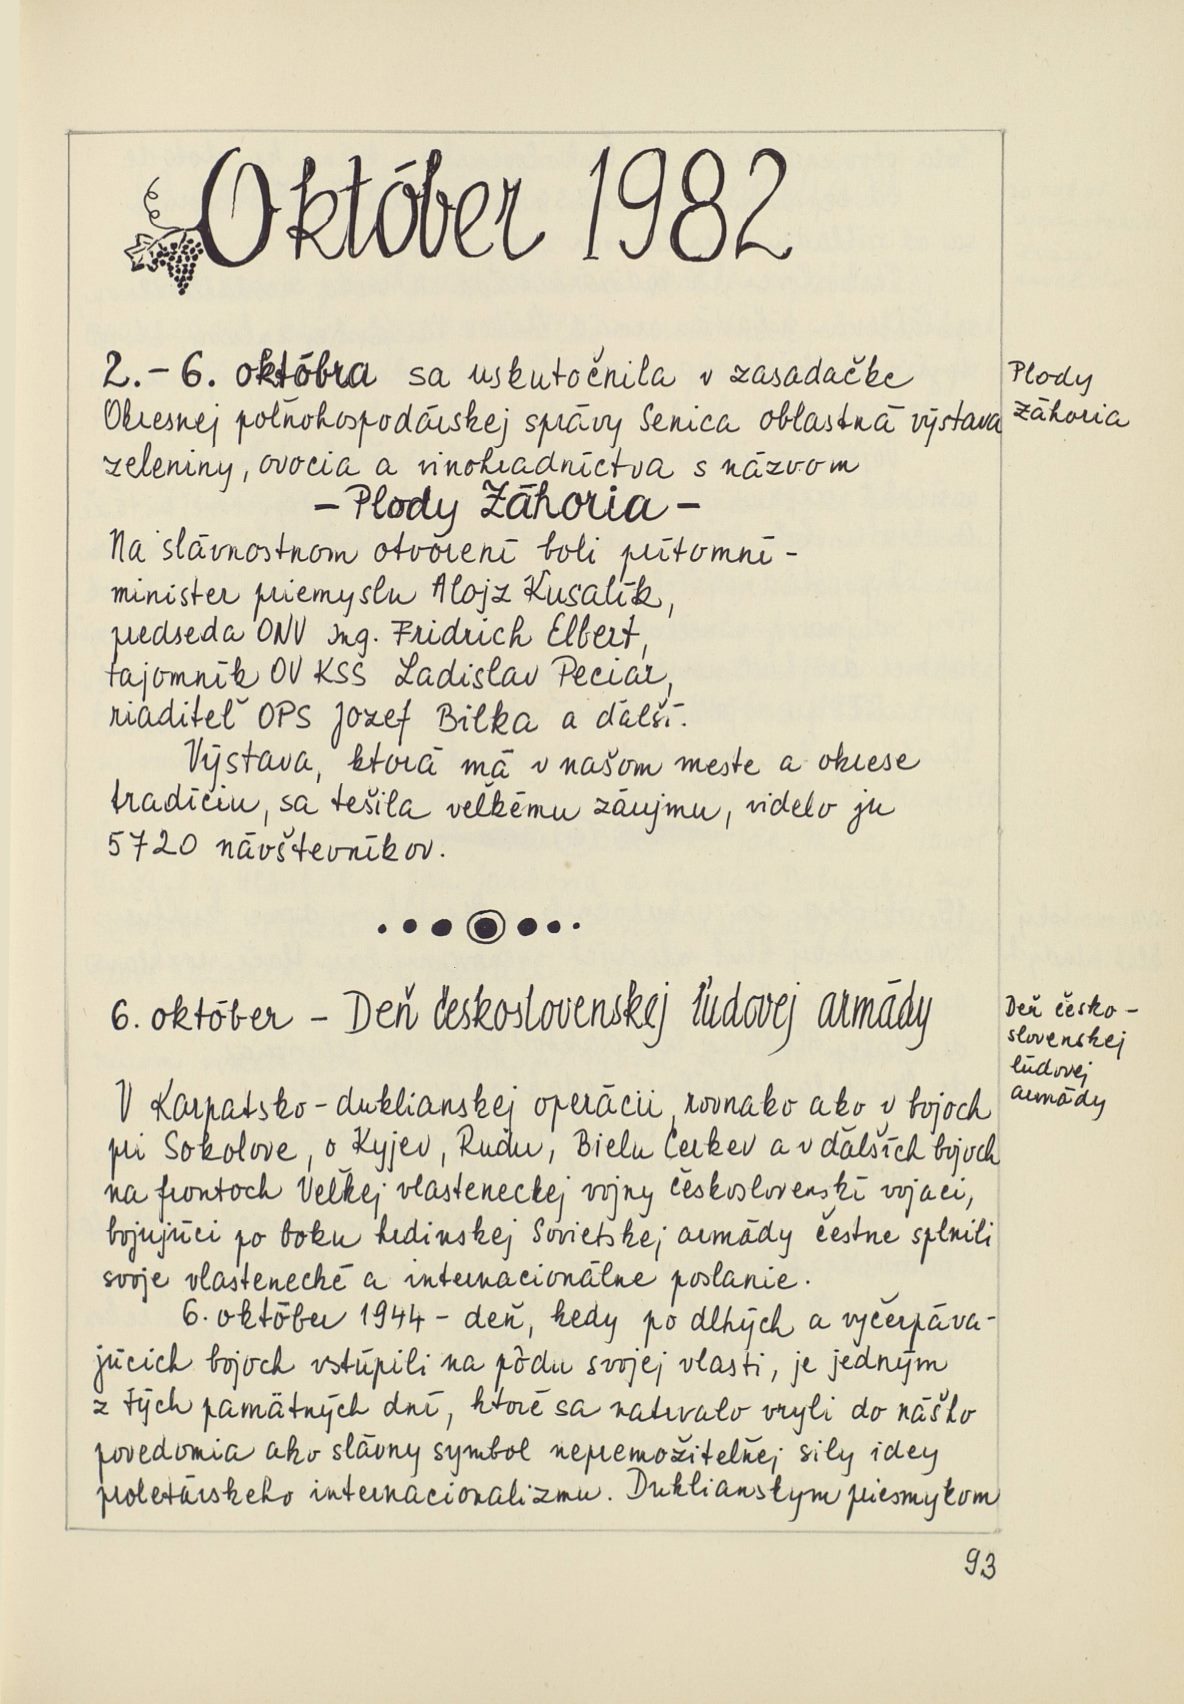 Október 1982
2.-6. októbra sa uskutočnila v zasadačke
Okresnej poľnohospodárskej správy Senica oblastná výstava
zeleniny, ovocia a vinohradníctva s názvom
- Plody Záhoria -
Na slávnostnom otvorení boli prítomní -
minister priemyslu Alojz Kusalík,
predseda ONV Ing. Fridrich Elbert,
tajomník OV KSS Ladislav Peciar,
riaditeľ OPS Jozef Bilka a ďalší.
Výstava, ktorá má v našom meste a okrese
tradíciu, sa tešila veľkému záujmu, videlo ju
5720 návštevníkov.
Plody
Záhoria
6. október - Deň československej ľudovej armády
V Karpatsko-duklianskej operácii, rovnako ako v bojoch
pri Sokolove, o Kyjev, Rudu, Bielu Cerkev a v ďalších bojoch
na frontoch Veľkej vlasteneckej vojny československí vojaci,
bojujúci po boku hrdinskej Sovietskej armády čestne splnili
svoje vlastenecké a internacionálne poslanie.
6. október 1944 - deň, kedy po dlhých a vyčerpáva-
júcich bojoch vstúpili na pôdu svojej vlasti, je jedným
z tých pamätných dní, ktoré sa natrvalo vryli do nášho
povedomia ako slávny symbol nepremožiteľnej sily idey
proletárskeho internacionalizmu. Duklianskym priesmykom
Deň česko-
slovenskej
ľudovej
armády
93